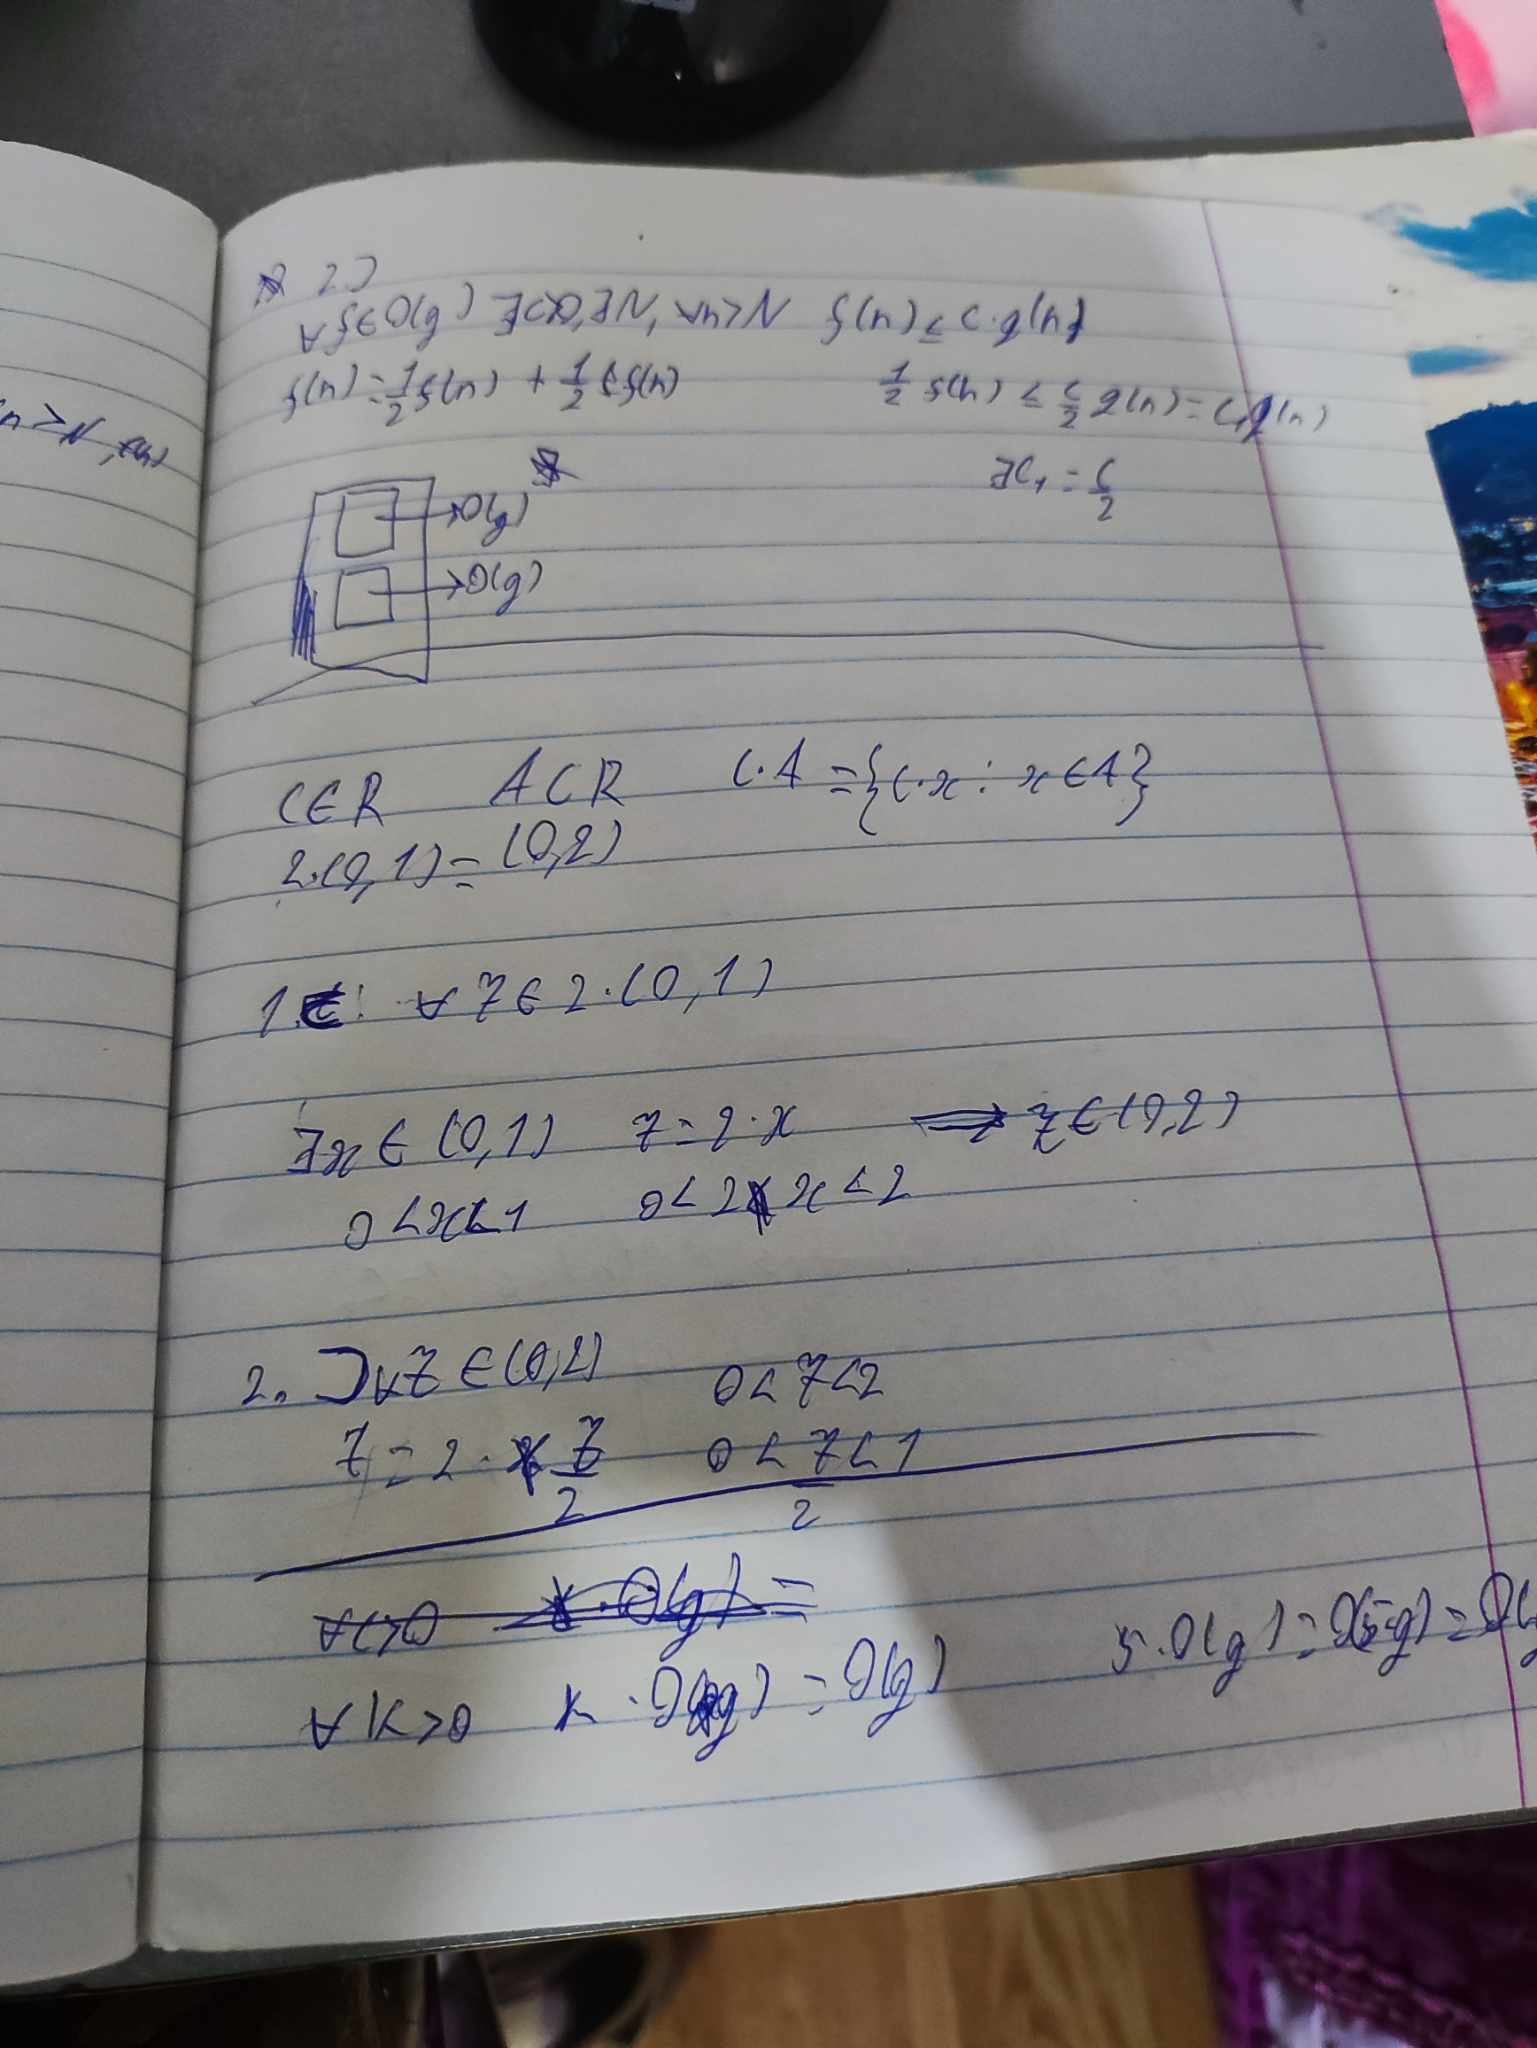 n > N, f(n)
2. ⊃
∀f∈O(g) ∃C>0, ∃N, ∀n>N f(n) ≤ C·g(n)
f(n) = 1/2 f(n) + 1/2 f(n) 1/2 f(n) ≤ C/2 g(n) = C₁g(n)
∃C₁ = C/2
→O(g)
→O(g)
C∈R A⊂R C·A = {C·x : x∈A}
2·(0,1) = (0,2)
1. ⊂: ∀z∈2·(0,1)
∃x∈(0,1) z=2·x ⟹ z∈(0,2)
0<x<1 0<2x<2
2. ⊃ ∀z∈(0,2) 0<z<2
z = 2·z/2 0<z/2<1
∀C>0 ·O(g) =
∀K>0 K·O(g) = O(g) 5·O(g) = O(5·g) = O(g